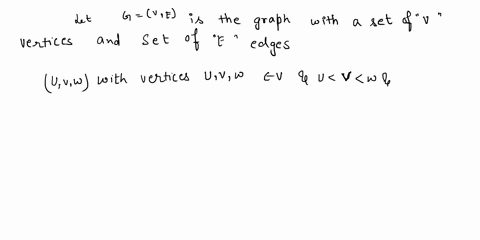 Let G = (V, E) is the graph with a set of "V"
vertices and set of "E" edges
(U, v, w) with vertices U, v, w ∈ V & U < V < w &